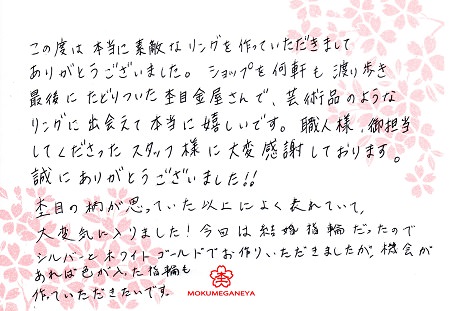 この度は本当に素敵なリングを作っていただきまして
ありがとうございました。ショップを何軒も渡り歩き
最後にたどりついた杢目金屋さんで、芸術品のような
リングに出会えて本当に嬉しいです。職人様、御担当
してくださったスタッフ様に大変感謝しております。
誠にありがとうございました!!
杢目の柄が思っていた以上によく表れていて、
大変気に入りました!今回は結婚指輪だったので
シルバーとホワイトゴールドでお作りいただきましたが、機会が
あれば色が入った指輪も
作っていただきたいです。
MOKUMEGANEYA